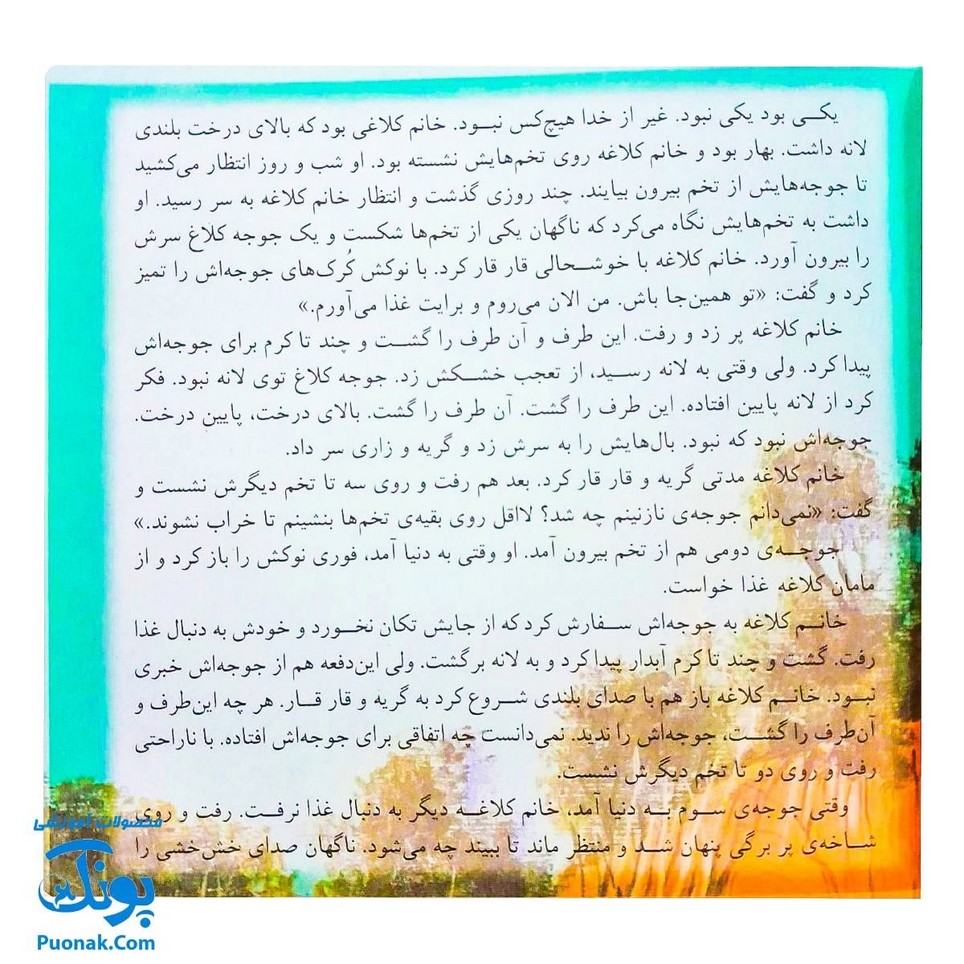 یکی بود یکی نبود. غیر از خدا هیچ‌کس نبود. خانم کلاغی بود که بالای درخت بلندی
لانه داشت. بهار بود و خانم کلاغه روی تخم‌هایش نشسته بود. او شب و روز انتظار می‌کشید
تا جوجه‌هایش از تخم بیرون بیایند. چند روزی گذشت و انتظار خانم کلاغه به سر رسید. او
داشت به تخم‌هایش نگاه می‌کرد که ناگهان یکی از تخم‌ها شکست و یک جوجه کلاغ سرش
را بیرون آورد. خانم کلاغه با خوشحالی قار قار کرد. با نوکش کُرک‌های جوجه‌اش را تمیز
کرد و گفت: «تو همین‌جا باش. من الان می‌روم و برایت غذا می‌آورم.»
خانم کلاغه پر زد و رفت. این طرف و آن طرف را گشت و چند تا کرم برای جوجه‌اش
پیدا کرد. ولی وقتی به لانه رسید، از تعجب خشکش زد. جوجه کلاغ توی لانه نبود. فکر
کرد از لانه پایین افتاده. این طرف را گشت. آن طرف را گشت. بالای درخت، پایین درخت.
جوجه‌اش نبود که نبود. بال‌هایش را به سرش زد و گریه و زاری سر داد.
خانم کلاغه مدتی گریه و قار قار کرد. بعد هم رفت و روی سه تا تخم دیگرش نشست و
گفت: «نمی‌دانم جوجه‌ی نازنینم چه شد؟ لااقل روی بقیه‌ی تخم‌ها بنشینم تا خراب نشوند.»
جوجه‌ی دومی هم از تخم بیرون آمد. او وقتی به دنیا آمد، فوری نوکش را باز کرد و از
مامان کلاغه غذا خواست.
خانم کلاغه به جوجه‌اش سفارش کرد که از جایش تکان نخورد و خودش به دنبال غذا
رفت. گشت و چند تا کرم آبدار پیدا کرد و به لانه برگشت. ولی این‌دفعه هم از جوجه‌اش خبری
نبود. خانم کلاغه باز هم با صدای بلندی شروع کرد به گریه و قار قار. هر چه این‌طرف و
آن‌طرف را گشت، جوجه‌اش را ندید. نمی‌دانست چه اتفاقی برای جوجه‌اش افتاده. با ناراحتی
رفت و روی دو تا تخم دیگرش نشست.
وقتی جوجه‌ی سوم به دنیا آمد، خانم کلاغه دیگر به دنبال غذا نرفت. رفت و روی
شاخه‌ی پر برگی پنهان شد و منتظر ماند تا ببیند چه می‌شود. ناگهان صدای خش‌خشی را
محصولات آموزشی
پونک
Puonak.Com